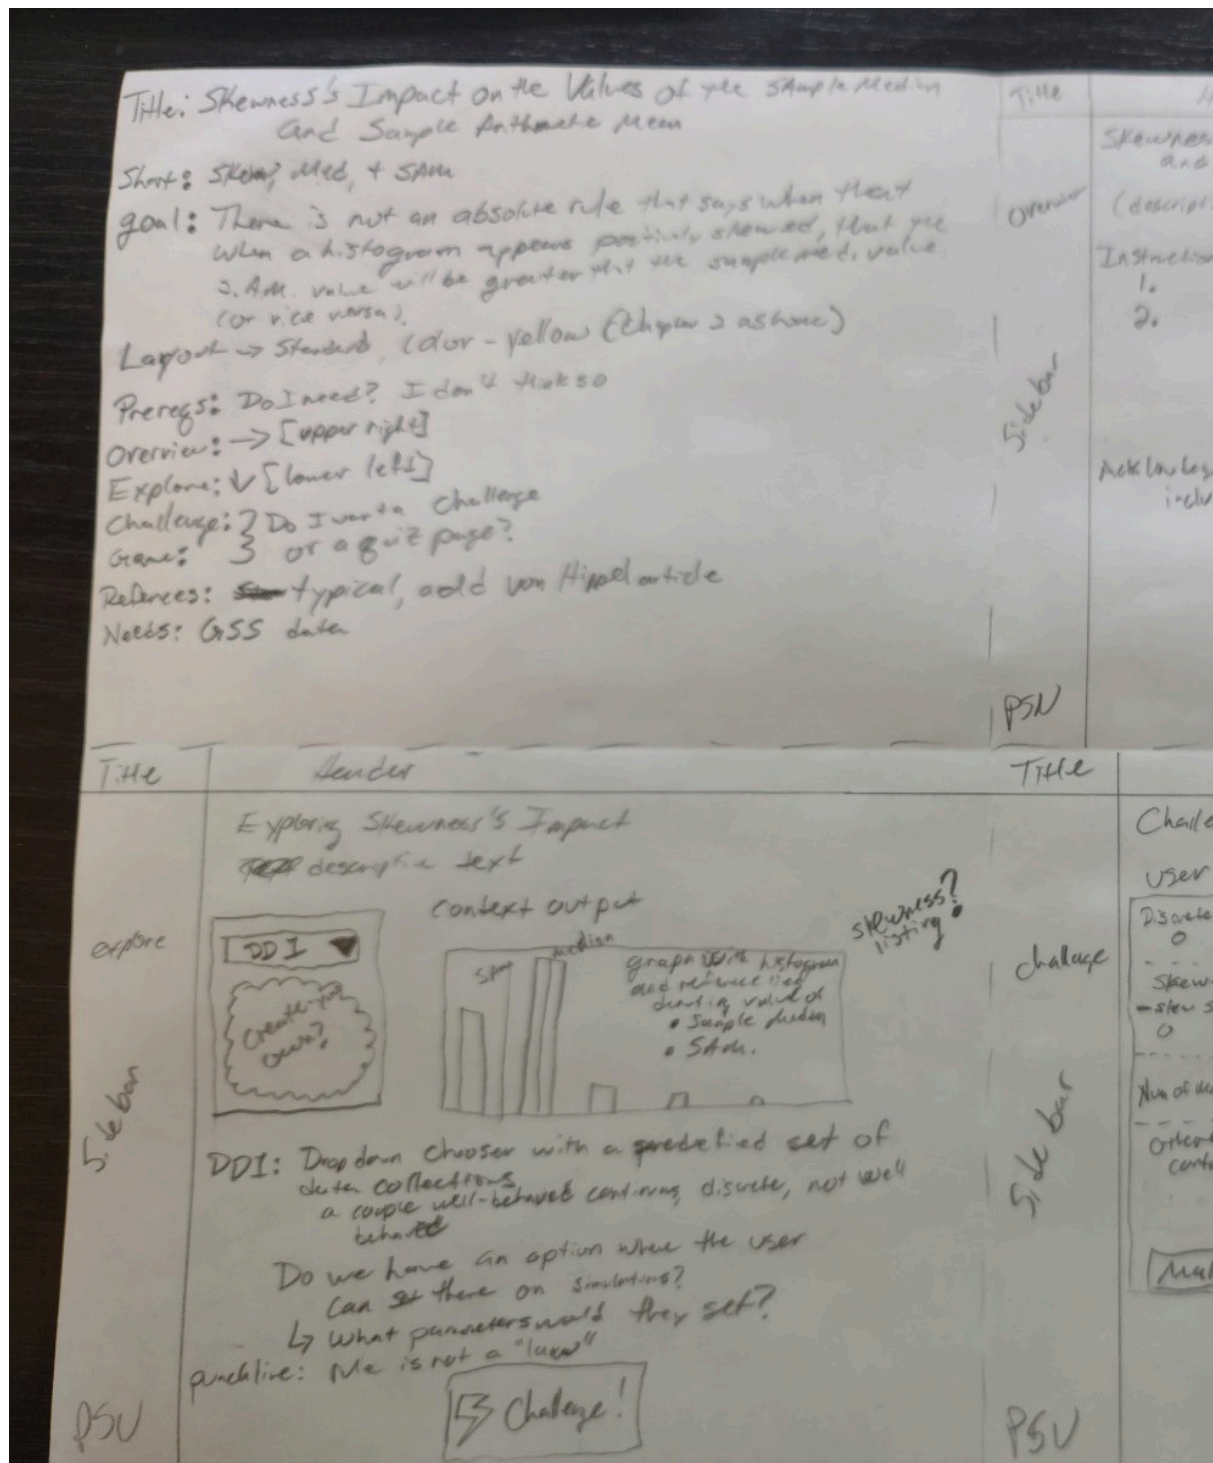 Title: Skewness's Impact on the Values of the Sample Median
and Sample Arithmetic Mean
Short: Skew, Med, + SAM
goal: There is not an absolute rule that says when that
when a histogram appears positively skewed, that the
S.AM. value will be greater that the sample med. value
(or vice versa).
Layout → Standard, Color - Yellow (Chapter 2 as home)
Prereqs: Do I need? I don't think so
Overview: → [upper right]
Explore: ↓ [lower left]
Challenge: } Do I want a challenge
Game: } or a quiz page?
Refences: typical, add von Hippel article
Needs: GSS data
Title
Skewness
and
Overview
(descript
Instruction
1.
2.
Side bar
inclu
PSU
Title
Header
Exploring Skewness's Impact
descriptive text
explore
context output
skewness?
listing?
DDI ▼
Create-your
own?
SAM
median
graph with histogram
and reference lies
value of
• Sample Median
• SAM.
Side bar
DDI: Drop down chooser with a predefied set of
data collections
a couple well-behaved continuous, discrete, not well
behaved
Do we have an option where the user
can set there on simulations?
↳ What parameters would they set?
punchline: is not a "law"
Challenge!
PSU
Title
Challe
user
Discrete
challenge
Skew
Side bar
Num of
PSU